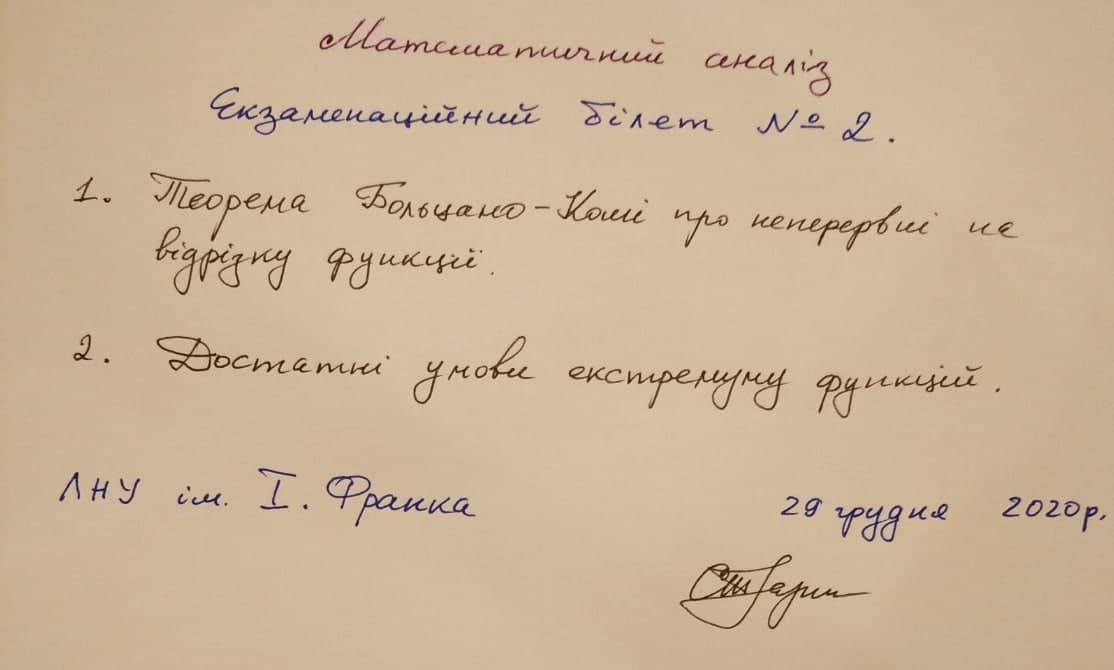 Математичний аналіз
Екзаменаційний білет № 2.
1. Теорема Больцано-Коші про неперервні на
відрізку функції.
2. Достатні умови екстремуму функцій.
ЛНУ ім. І. Франка
29 грудня 2020р.